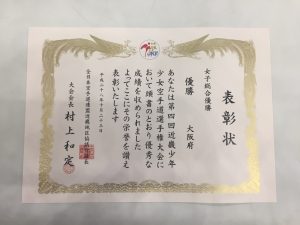 表彰状
女子総合優勝
大阪府
優勝
あなたは第四回近畿少年
少女空手道選手権大会に
おいて頭書のとおり優秀な
成績を収められました
よってここにその栄誉を讃え
表彰いたします
平成二十八年十月二十三日
大会会長 村上和定